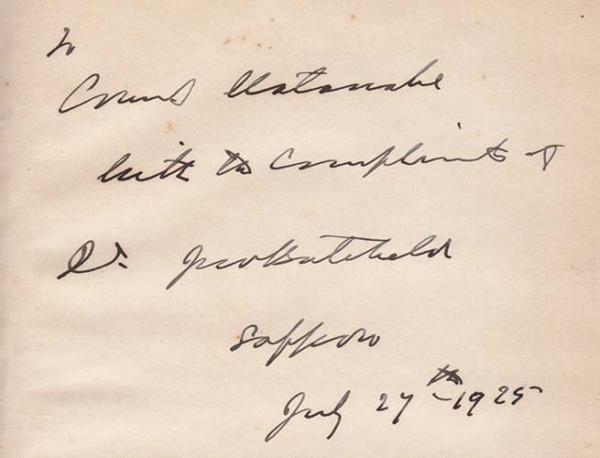 To
Count Watanabe
With the Compliments of
Dr. Jno Batchelor
Sapporo
July 27th 1925